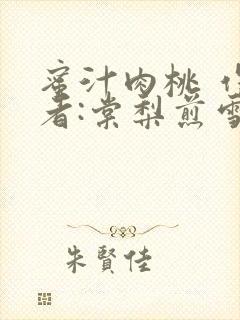 蜜汁肉桃 作
者:棠梨煎雪
朱賢佳